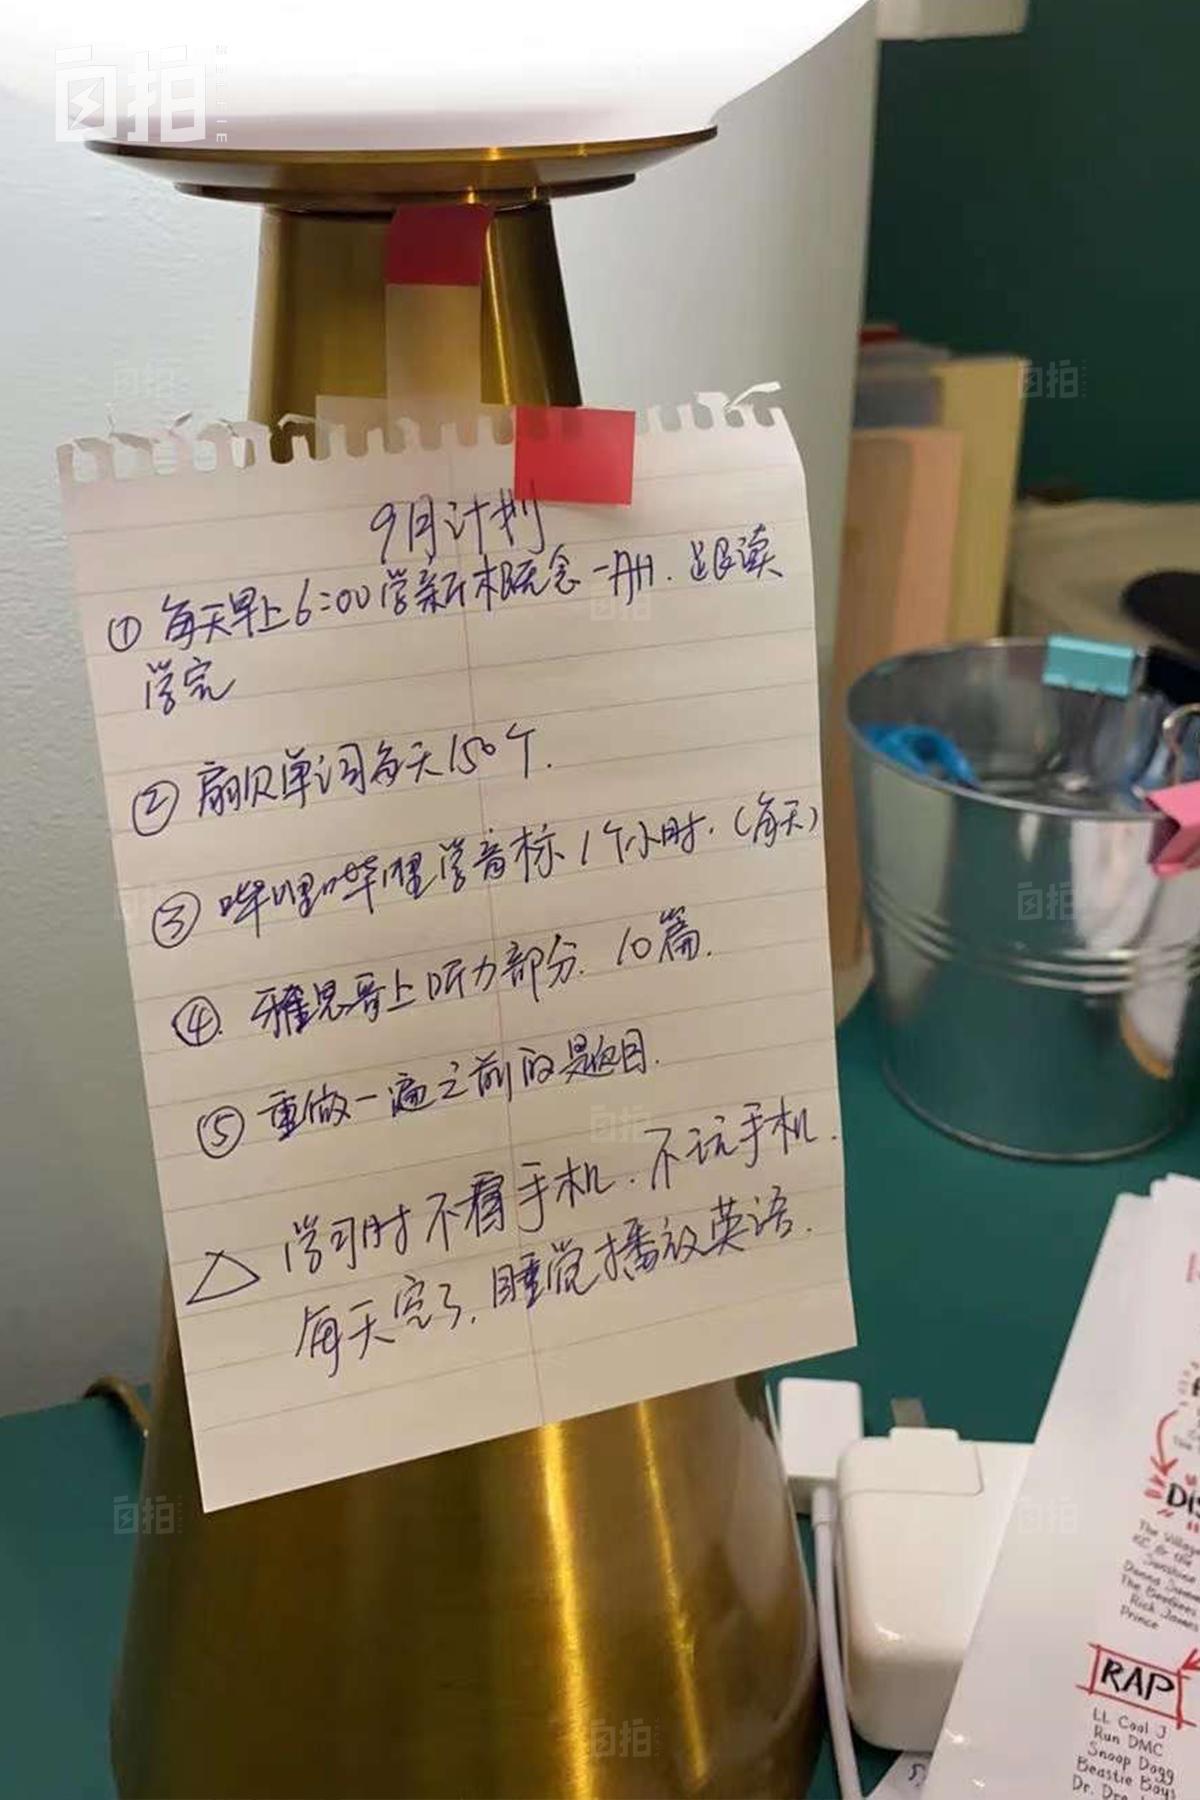 自拍
SELFIE
9月计划
① 每天早上6:00学新概念一册. 跟读
学完
② 扇贝单词每天150个.
③ 哔哩哔哩学音标1个小时.(每天)
④. 雅思哥上听力部分. 10篇.
⑤ 重做一遍之前的题目.
△ 学习时不看手机. 不玩手机.
每天完了, 睡觉播放英语.
DIS
The Village
KC & the
Sunshine
Donna Summer
Rick James
Prince
RAP
LL Cool J
Run DMC
Snoop Dogg
Beastie Boys
Dr. Dre